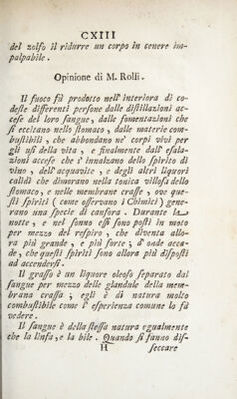 CXIII
del zolfo il ridurre un corpo in cenere im-
palpabile.
Opinione di M. Rolli.
Il fuoco fù prodotto nell'interiora di co-
deste differenti persone dalle distillazioni ac-
cese del loro sangue, dalle fomentazioni che
si eccitano nello stomaco, dalle materie com-
bustibili, che abbondano ne' corpi vivi per
gli usi della vita, e finalmente dall'esala-
zioni accese che s' innalzano dello spirito di
vino, dell'acquavite, e degli altri liquori
calidi che dimorano nella tonica villosa dello
stomaco, e nelle membrane crasse, ove que-
sti spiriti (come osservano i Chimici) gene-
rano una specie di canfora. Durante la
notte, e nel sonno essi sono posti in moto
per mezzo del respiro, che diventa allo-
ra più grande, e più forte; d' onde acca-
de, che questi spiriti sono allora più disposti
ad accendersi.
Il grasso è un liquore oleoso separato dal
sangue per mezzo delle glandule della mem-
brana crassa; egli è di natura molto
combustibile come l' esperienza comune lo fà
vedere.
Il sangue è della stessa natura egualmente
che la linfa, e la bile. Quando si fanno dis-
H seccare